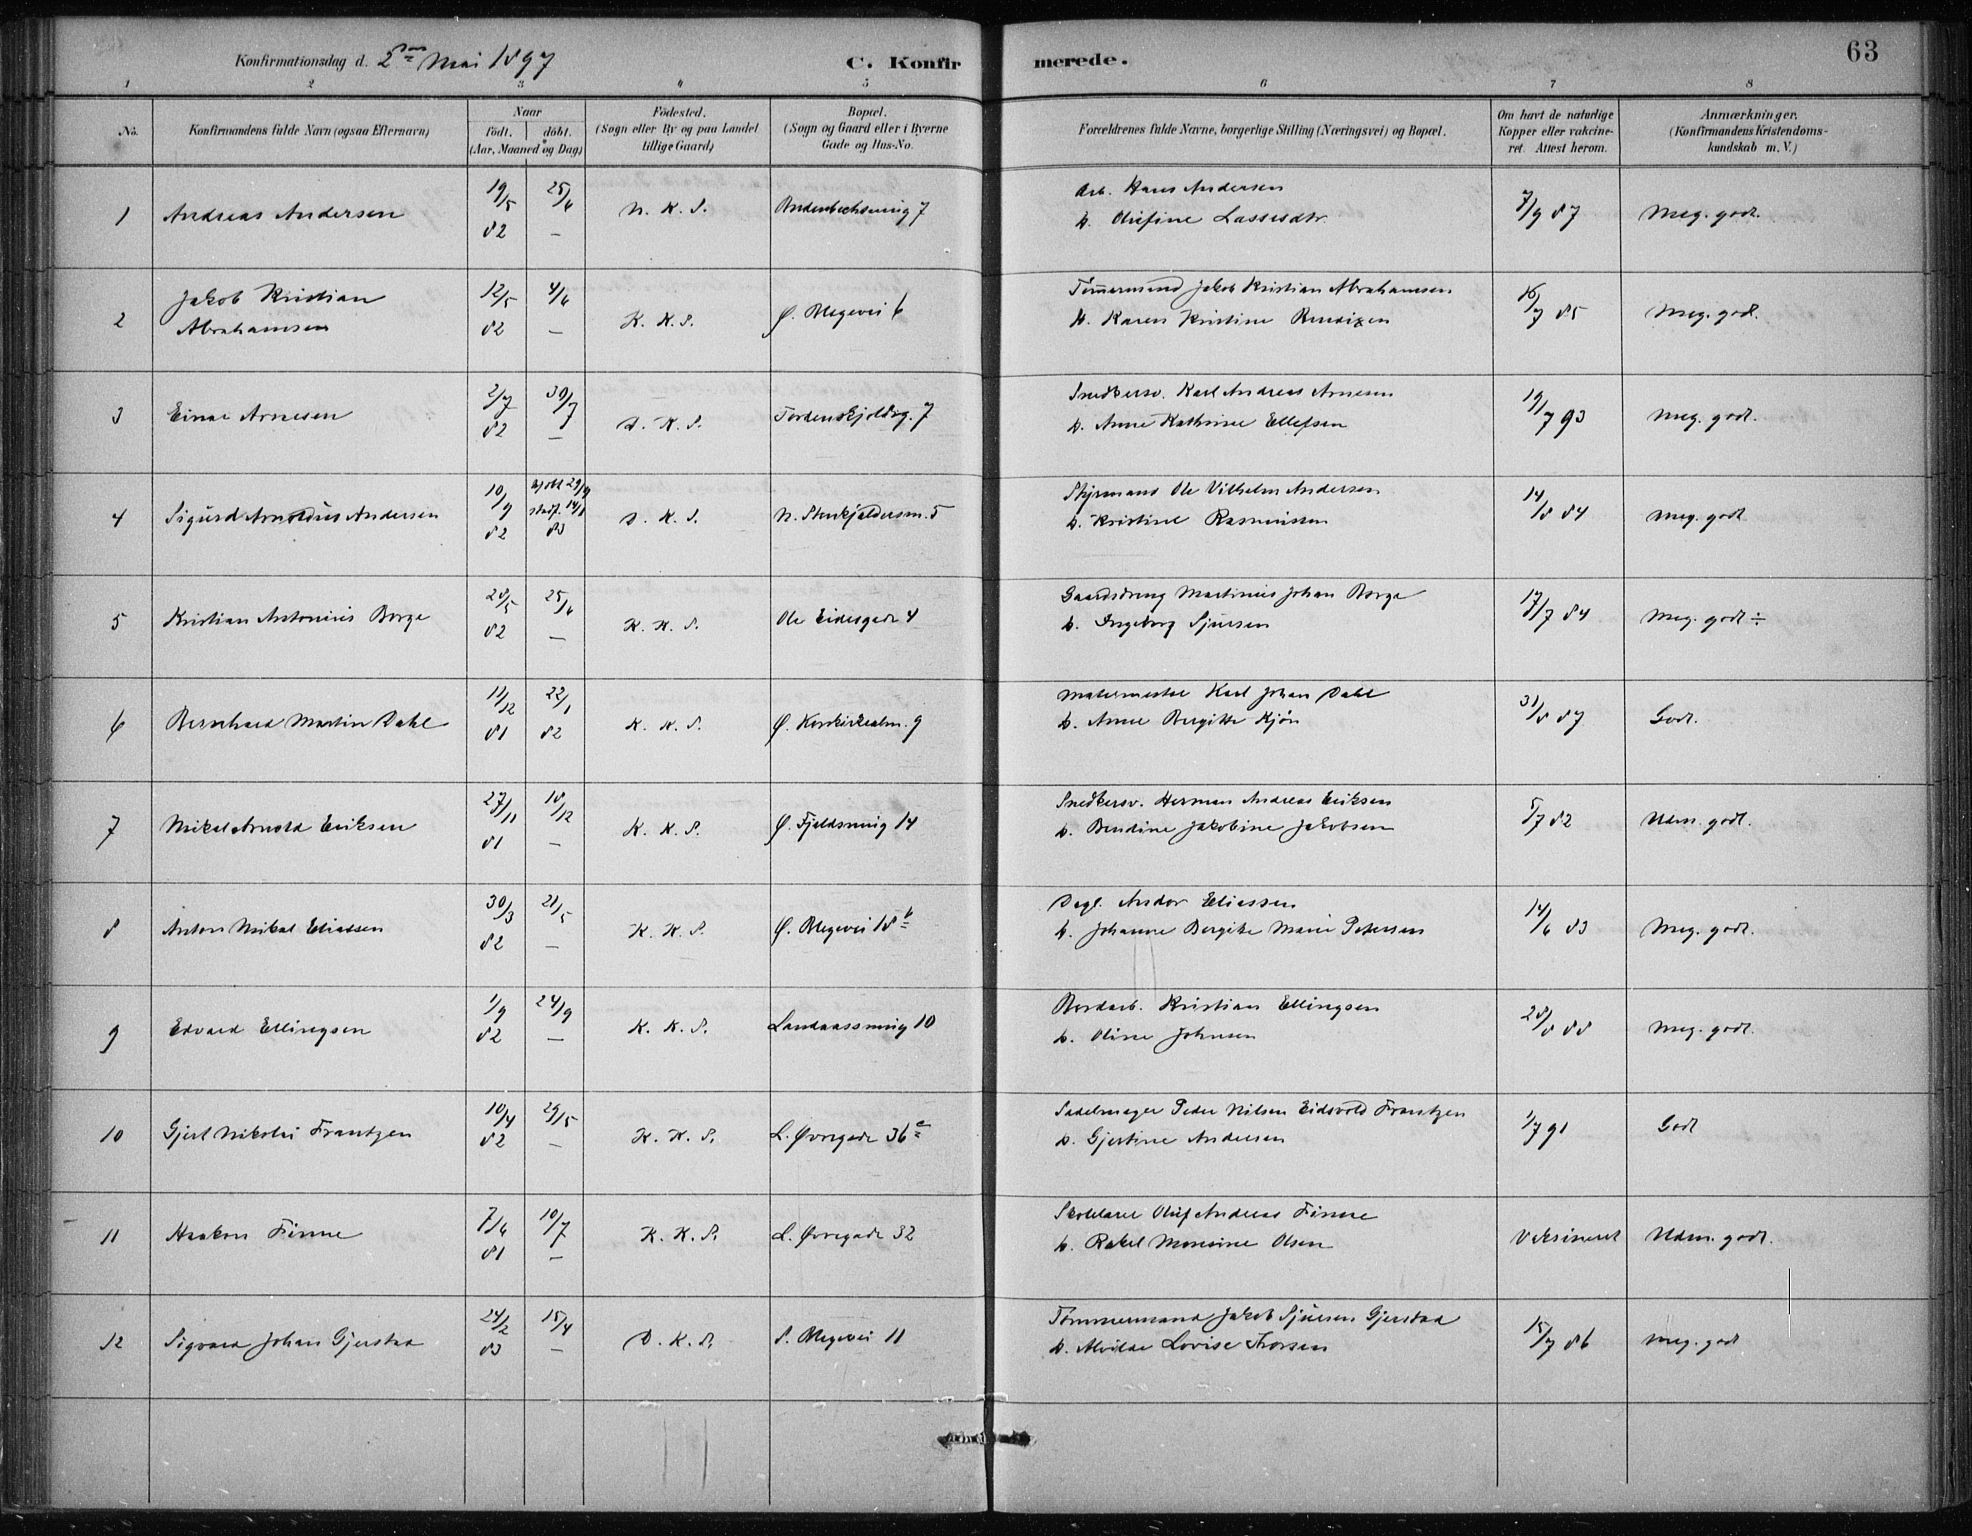 63
Konfirmationsdag d. 2den Mai 1897 C. Konfirmerede.
1 2 3 4 5 6 7 8
No. Konfirmandens fulde Navn (ogsaa Efternavn) Naar födt. döbt. (Aar, Maaned og Dag) Födested. (Sogn eller By og paa Landet tillige Gaard) Bopæl. (Sogn og Gaard eller i Byerne Gade og Hus-No. Forældrenes fulde Navne, borgerlige Stilling (Næringsvei) og Bopæl. Om havt de naturlige Kopper eller vakcineret. Attest herom. Anmærkninger. (Konfirmandens Kristendomskundskab m. V.)
1 Andreas Andersen 19/5 82 25/6 — N. K. S. 7 Arb. Hans Andersen h. Olufine Lassesdtr. 7/9 87 Meg. godt.
2 Jakob Kristian Abrahamsen 12/5 82 4/6 — K. K. S. Ø. Blegevei 6 Tømermand Jakob Kristian Abrahamsen h. Karen Kristine 16/7 85 Meg. godt.
3 Einar Arnesen 2/7 82 30/7 — D. K. S. Tordenskjoldsg. 7 Snedkersv. Karl Andreas Arnesen h. Anne Kathrine Ellefsen 19/7 93 Meg. godt.
4 Sigurd Arnoldus Andersen 10/9 82 hjdbt 29/9 stadf. 14/1 83 D. K. S. N. Stenkjeldersm. 5 Styrmand Ole Vilhelm Andersen h. Kristine Rasmussen 14/8 84 Meg. godt
5 Kristian Antonius Borge 28/5 82 25/6 — K. K. S. Ole Eidesgade 4 Gaardsdreng Martinus Johan Borge h. Ingeborg Sjursen 17/7 84 Meg. godt ÷
6 Bernhard Martin Dahl 11/12 81 22/1 82 K. K. S. Ø. Korskirkealm. 9 Malermester Karl Johan Dahl h. Anne Bergitte Kjön 31/8 87 Godt.
7 Mikal Arnold Eriksen 27/11 81 18/12 — K. K. S. Ø. Fjeldsmug 14 Snedkersv. Herman Andreas Eriksen h. Bendine Jakobine Jakobsen 5/7 82 Udm. godt.
8 Anton Mikal Eliassen 30/3 82 21/5 — K. K. S. Ø. Blegevei 18 b Dagl. Andor Eliassen h. Johanne Bergitte Marie Petersen 14/6 83 Meg. godt.
9 Edvard Ellingsen 1/9 82 24/9 — K. K. S. Landaassmug 10 Kristian Ellingsen h. Oline Johnsen 28/8 88 Meg. godt.
10 Gjert Nikolai Frantzen 10/4 82 29/5 — K. K. S. L. Øvregade 36 a Sadelmager Peder Nilsen Eidsvold Frantzen h. Gjertine Andersen 1/7 91 Godt
11 Haakon Finne 7/6 81 10/7 — K. K. S. L. Øvregade 32 Skolelærer Oluf Andreas Finne h. Rakel Monsine Olsen Vaksineret Udm. godt.
12 Sigvard Johan Gjerstad 24/2 83 15/4 — D. K. S. S. Blegevei 11 Tømmermand Jakob Sjursen Gjerstad h. Alvilde Lovise Thorsen 15/7 86 Meg. godt